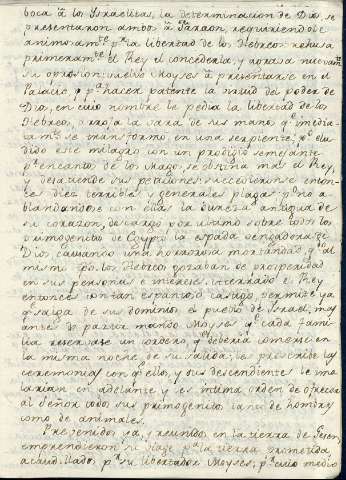 boca à los Israelitas, la determinacion de Dios, se
presentaron ambos à Faraon, requiriendole
animosamte pa la libertad de los Hebreos: rehusa
primeramte el Rey el concederla, y agrava nuevamte
su opresion: vuelve Moyses à presentarse en el
Palacio, y pa hacer patente la virtud del poder de
Dios, en cuio nombre le pedia la libertad de los
Hebreos, arrojò la vara de sus manos qe
se transformo en una serpiente; pero elu
dido este milagro con un prodigio semejante
pr encanto de los Magos, se obstina mas el Rey,
y desatiende sus peticiones: sucedieronse enton
ces diez terribles y generales plagas, y no a
blandandose con ellas la dureza antigua de
su corazon, descargò por ultimo sobre todos los
primogenitos de Egypto la espada vengadora de
Dios, causando una horrorosa mortandad, qdo al
mismo tpo los Hebreos gozaban de prosperidad
en sus personas è intereses. Aterrado el Rey
entonces con tan espantoso castigo, permite ya
qe salga de sus dominios el pueblo de Israel, mas
antes de partir mandò Moyses qe cada fami
lia reservase un cordero, qe deberia comerse en
la misma noche de su salida; les prescribe las
ceremonias con qe ellos, y sus descendientes le
en adelante y les intima orden de ofrecer
al Señor todos sus primogenitos tanto de hombres
como de animales.
Prevenidos ya, y reunidos en la tierra de Gesen,
emprendieron su viage pa la tierra prometida
acaudillados pr su libertador Moyses, pr cuio medio